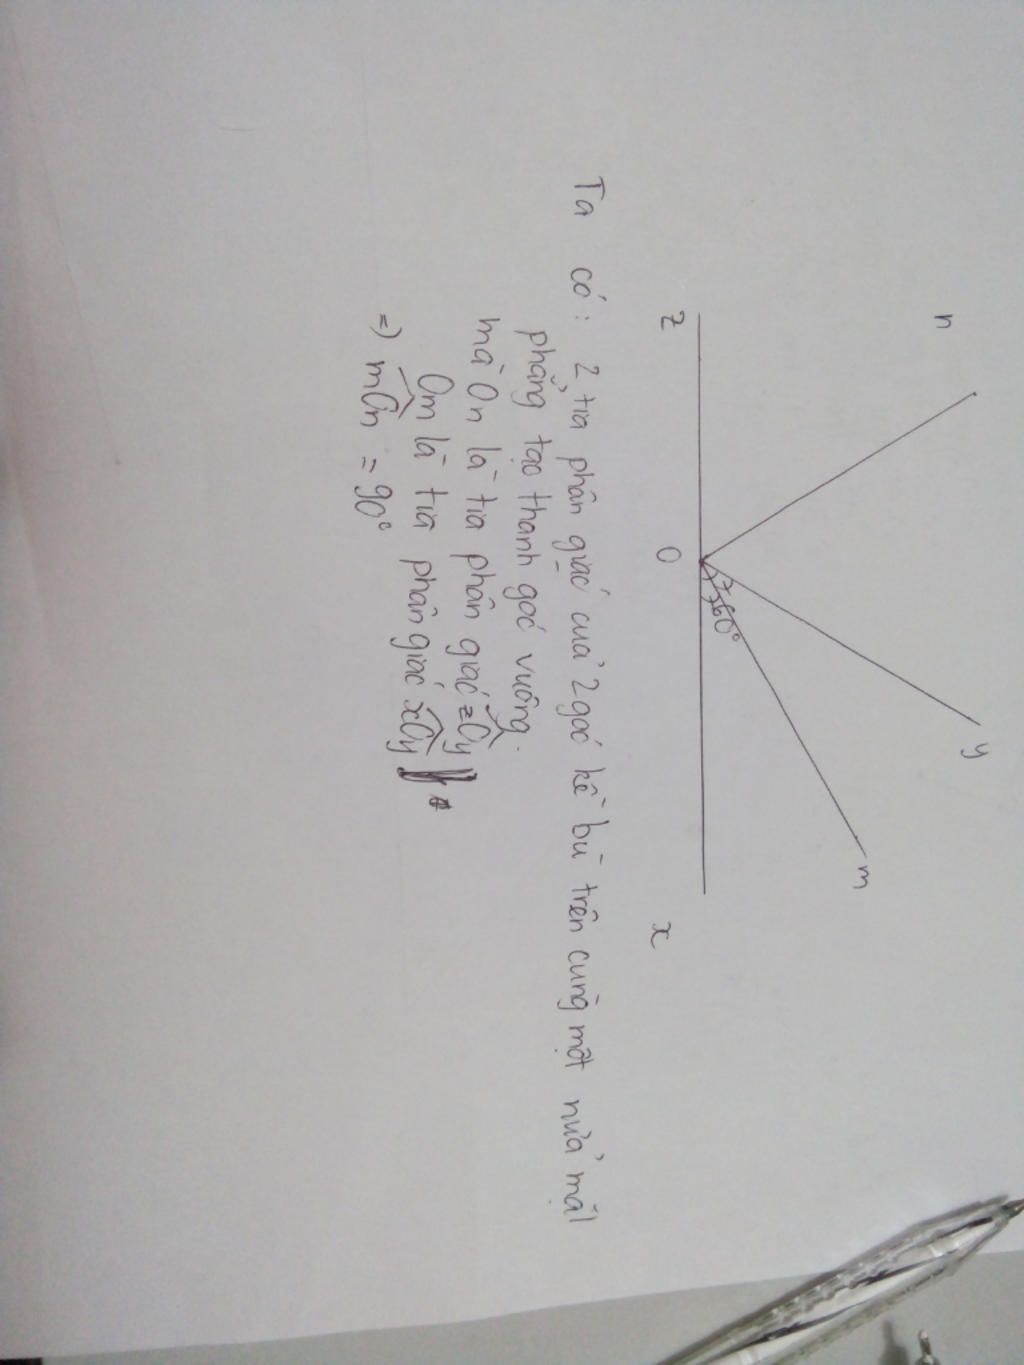 n
y
m
60°
z
O
x
Ta có: 2 tia phân giác của 2 góc kề bù trên cùng một nửa mặt
phẳng tạo thành góc vuông.
mà On là tia phân giác zOy
Om là tia phân giác xOy
=) mOn = 90°